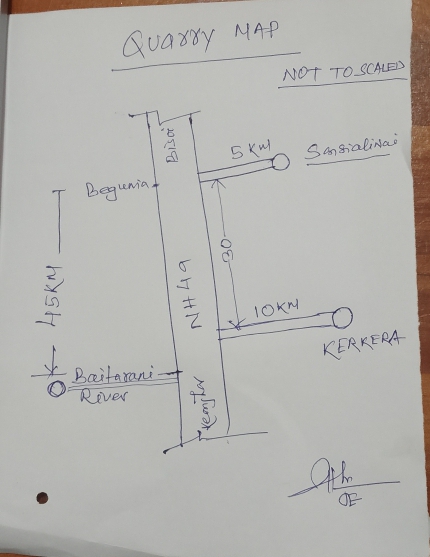 Quarry MAP
NOT TO SCALED
Bisoi
5 KM
Sansialinai
Begunia
45KM
NH49
30
10KM
KERKERA
Baitarani
River
Kenjhar
JE